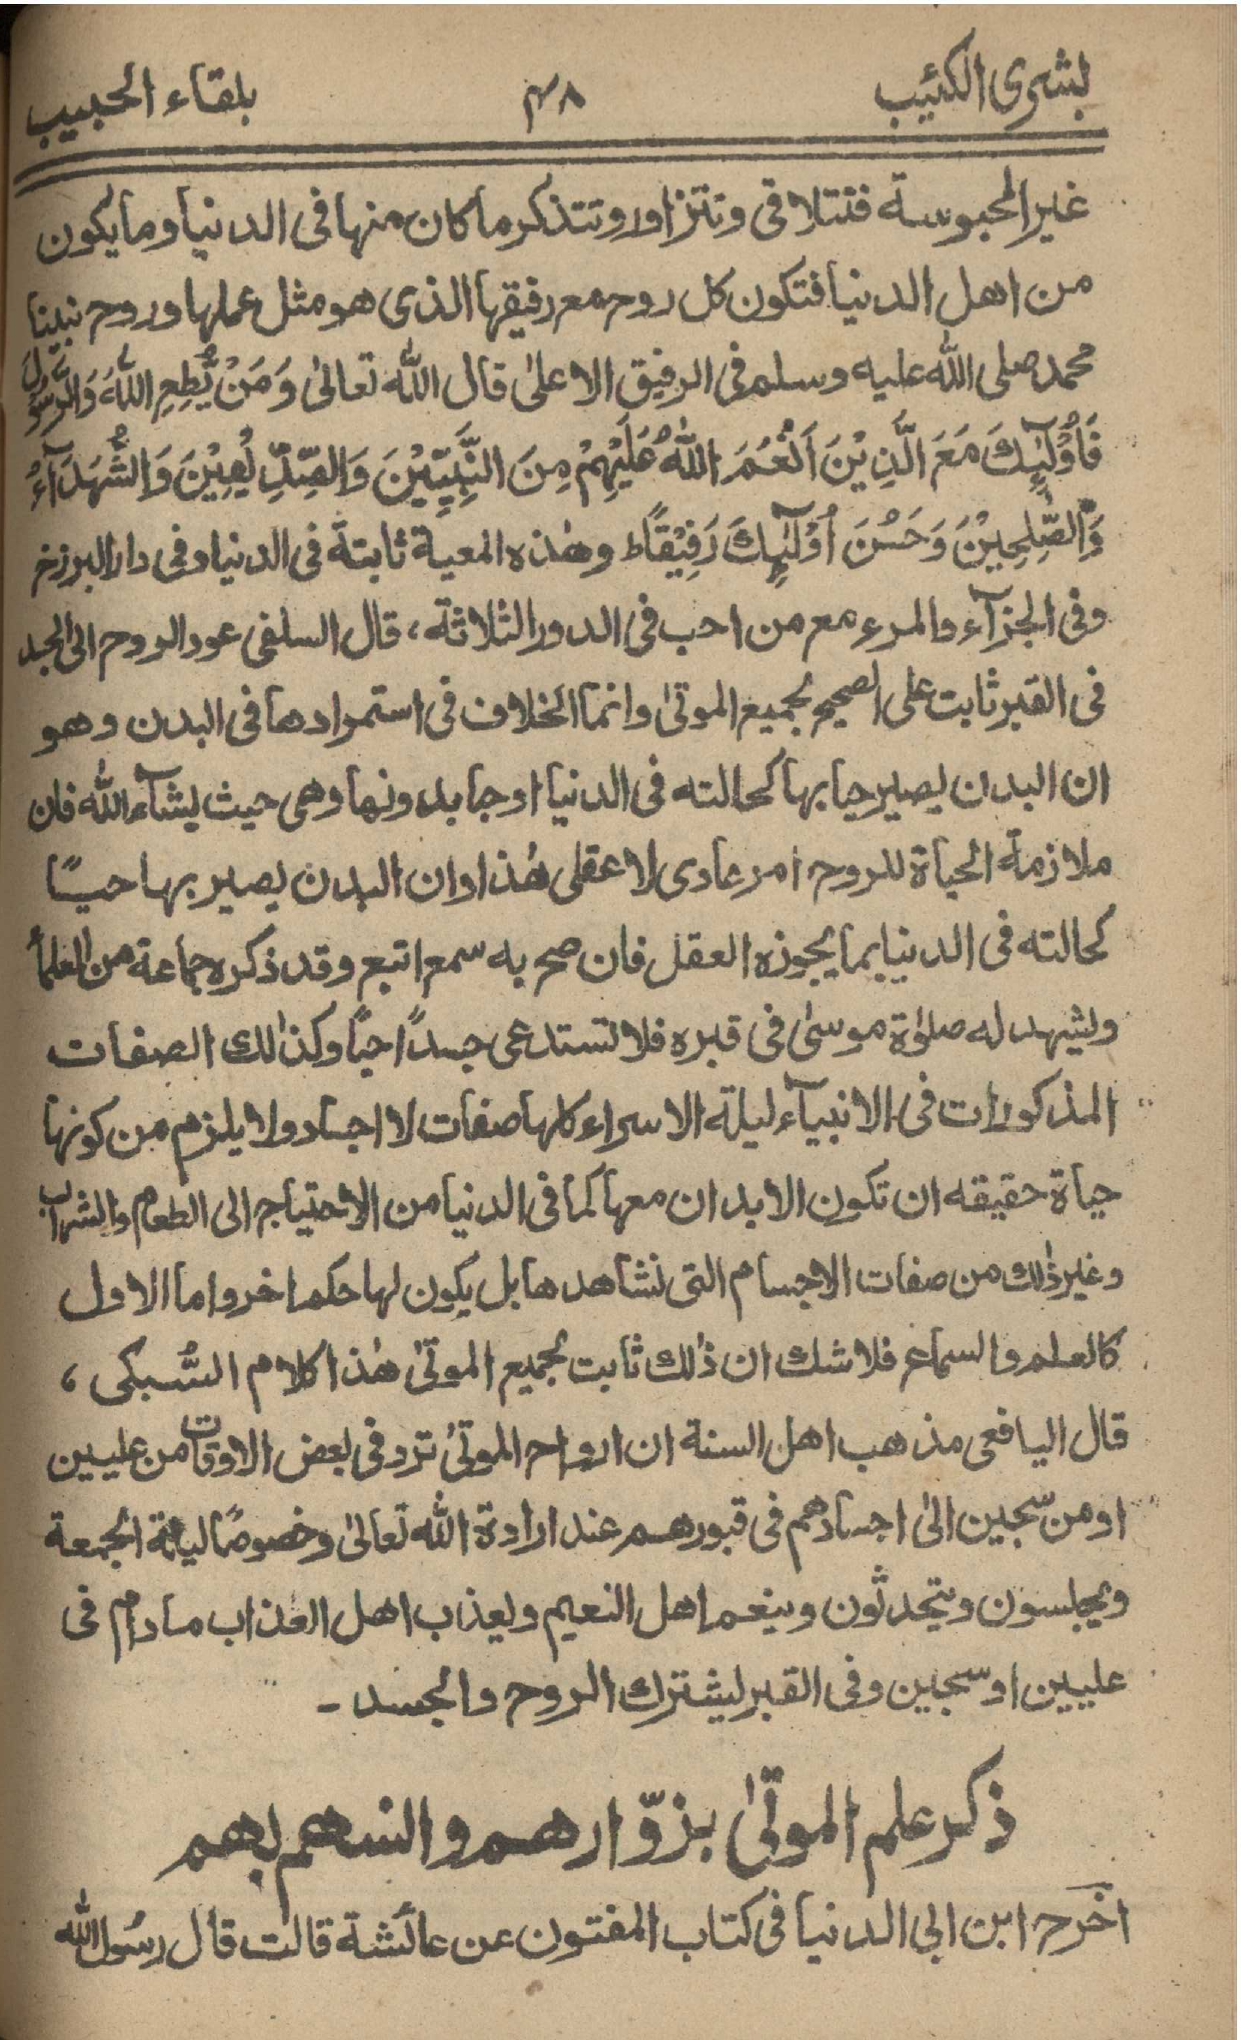 بشرى الكئيب ٤٨ بلقاء الحبيب
غير المحبوسة فتتلاقى وتتزاور وتتذكر ما كان منها فى الدنيا وما يكون
من اهل الدنيا فتكون كل روح مع رفيقها الذى هو مثل عملها وروح نبينا
محمد صلى الله عليه وسلم فى الرفيق الاعلىٰ قال الله تعالىٰ وَمَنْ يُّطِعِ اللّٰهَ وَالرَّسُوْلَ
فَاُولٰٓئِكَ مَعَ الَّذِيْنَ اَنْعَمَ اللّٰهُ عَلَيْهِمْ مِنَ النَّبِيّيْنَ وَالصِّدِّيْقِيْنَ وَالشُّهَدَآءِ
وَالصّٰلِحِيْنَ وَحَسُنَ اُولٰٓئِكَ رَفِيْقًا ط وهٰذه المعية ثابتة فى الدنيا وفى دار البرزخ
وفى الجزآء والمرء مع من احب فى الدور الثلاثة، قال السلفى عود الروح الى الجسد
فى القبر ثابت على الصحيح لجميع الموتىٰ وانما الخلاف فى استمرارها فى البدن وهو
ان البدن يصير حيا بها كحالته فى الدنيا اوحيا بدونها وهى حيث يشآء الله فان
ملازمة الحياة للروح امر عادى لا عقلى هٰذا وان البدن يصير بها حيًّا
كحالته فى الدنيا بما يجوزه العقل فان صح به سمع اتبع وقد ذكره جماعة من العلمآ
ويشهد له صلوٰة موسىٰ فى قبره فلا تستدعى جسدًا حيًا وكذٰلك الصفات
المذكورات فى الانبيآء ليلة الاسراء كلها صفات لا اجساد ولا يلزم من كونها
حياة حقيقه ان تكون الابدان معها كما فى الدنيا من الاحتياج الى الطعام والشراب
وغير ذٰلك من صفات الاجسام التى نشاهدها بل يكون لها حكم اخر واما الاول
كالعلم والسماع فلا شك ان ذٰلك ثابت لجميع الموتىٰ هٰذا كلام السُّبكى،
قال اليافعى مذهب اهل السنة ان ارواح الموتىٰ ترد فى بعض الاوقات من عليين
او من سّجين الىٰ اجسادهم فى قبورهم عند ارادة الله تعالىٰ وخصوصًا ليلة الجمعة
ويجلسون ويتحدثون وينعم اهل النعيم ويعذب اهل العذاب ما دام فى
عليين او سجين وفى القبر يشترك الروح والجسد -
ذكر علم الموتىٰ بزوّارهم وانسهم بهم
اخرج ابن ابى الدنيا فى كتاب المفتون عن عائشة قالت قال رسُول الله